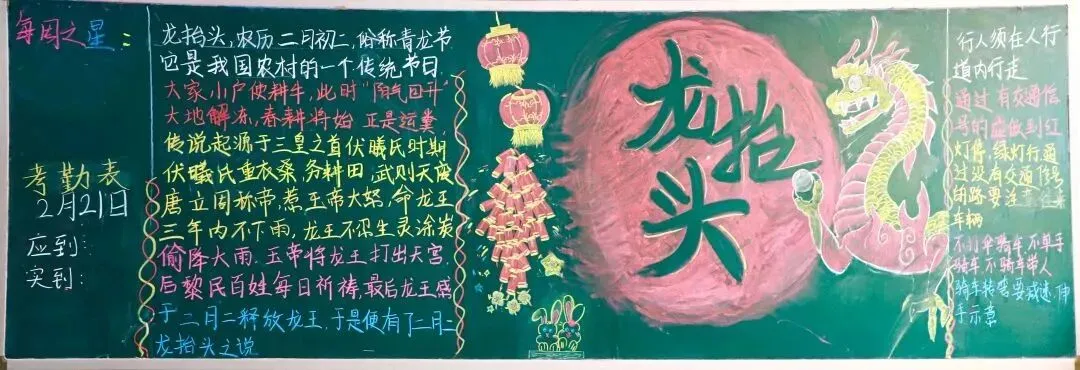 每周之星：
考勤表
2月21日
应到：
实到：
龙抬头,农历二月初二,俗称青龙节
它是我国农村的一个传统节日
大家小户使耕牛,此时"阳气回升"
大地解冻,春耕将始 正是运粪
传说起源于三皇之首伏曦氏时期
伏曦氏重农桑,务耕田,武则天废
唐立周称帝,惹玉帝大怒,命龙王
三年内不下雨,龙王不忍生灵涂炭
偷降大雨.玉帝将龙王打出天宫.
后黎民百姓每日祈祷,最后龙王感
于二月二释放龙王.于是便有了二月二
龙抬头之说
龙抬头
行人须在人行
道内行走
通过有交通信
号的应做到红
灯停,绿灯行,通
过没有交通信号
的路要注
车辆
不打伞骑车,不单手
骑车,不骑车带人
骑车转弯要减速,伸
手示意